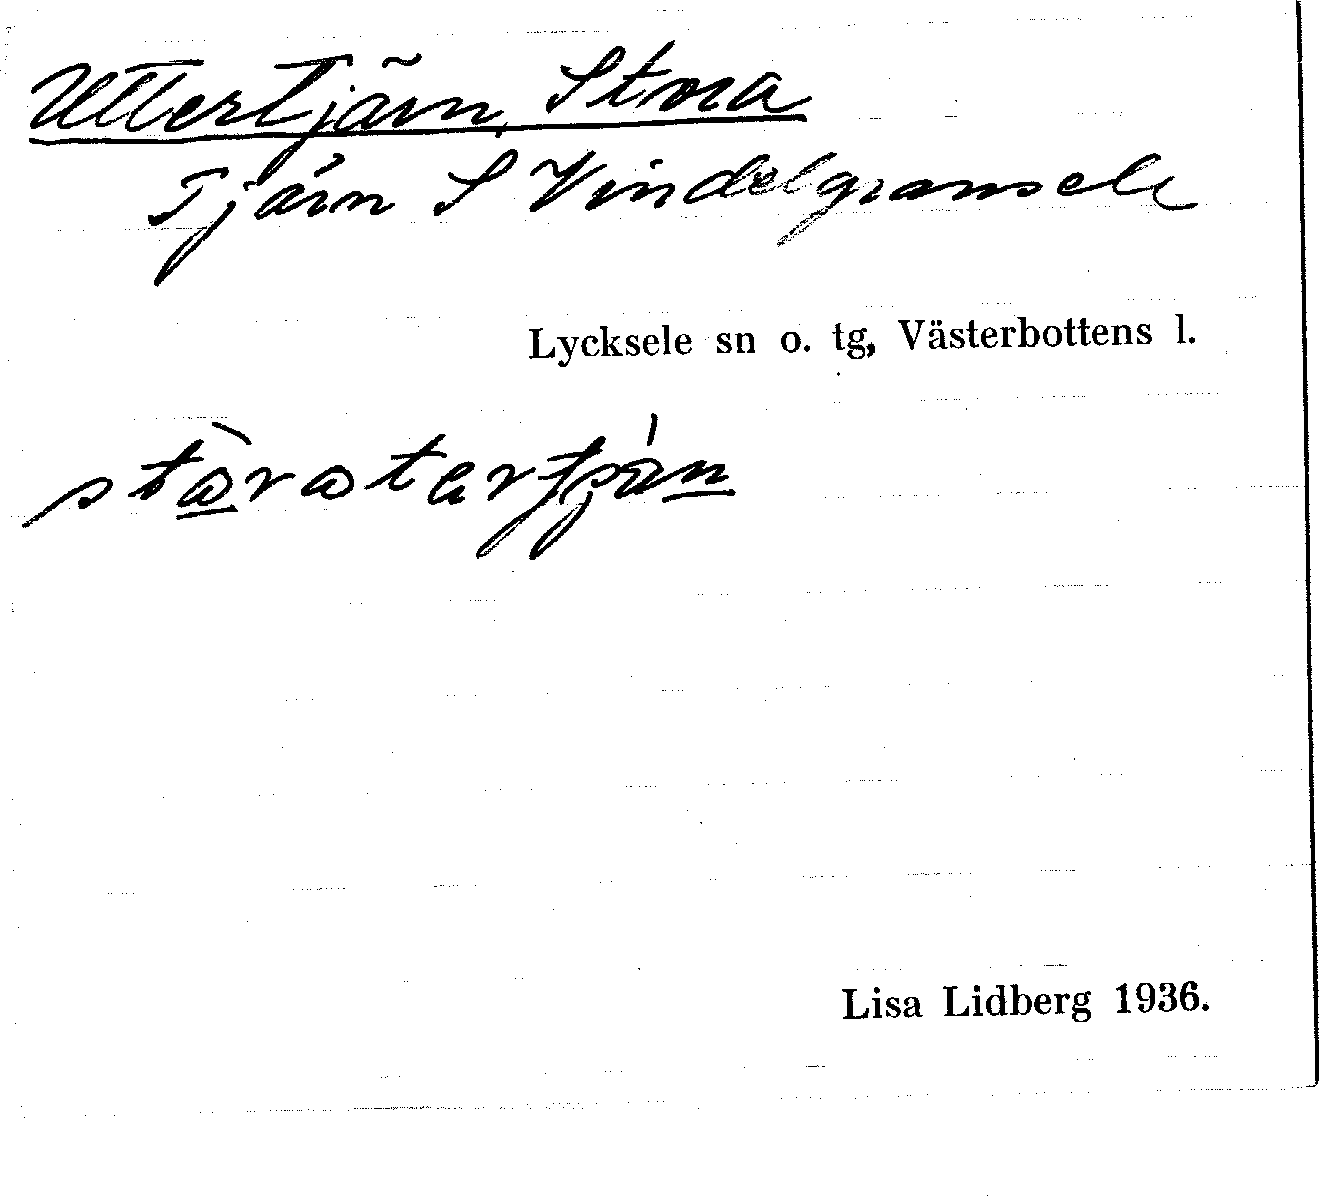 Uttertjärn, Stora
Tjärn S Vindelgransele
Lycksele sn o. tg, Västerbottens l.
Lisa Lidberg 1936.